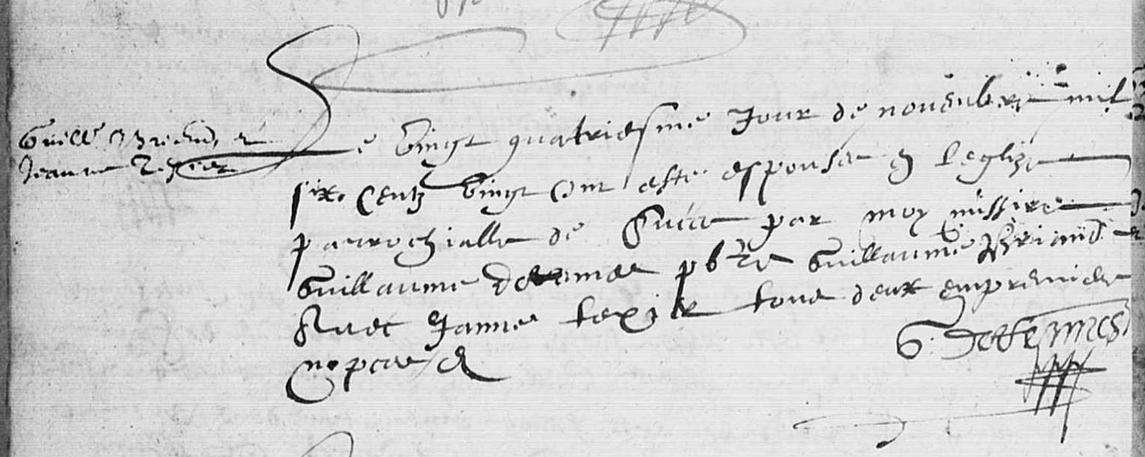 Guill Briend et
Jeanne Texier
Le vingt quatriesme Jour de novembre mil
six centz vingt ont este espousé en leglize
parrochialle de par moy missire
Guillaume pbre Guillaume Briend
Avec Janne texier tous deux en premier
nopces
G.